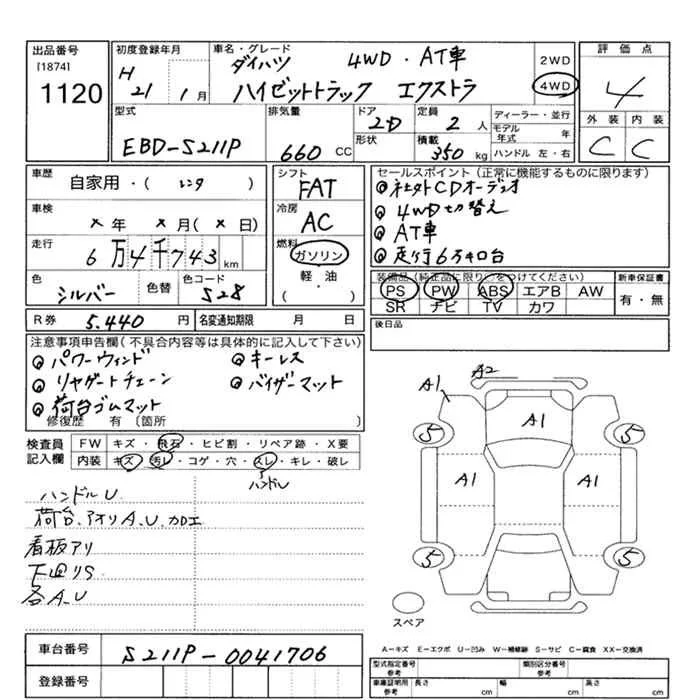 出品番号
[1874]
1120
初度登録年月
H 21 1月
車名・グレード
ダイハツ 4WD・AT車
ハイゼットトラック エクストラ
2WD
4WD
評価点
4
外装 内装
C C
型式
EBD-S211P
排気量
660 CC
ドア
2D
形状
定員
2 人
積載
350 kg
ディーラー・並行
モデル年式 年
ハンドル 左・右
車歴
自家用・( レンタ )
車検
× 年 × 月(× 日)
走行
6万4千743 km
色
シルバー
色替
色コード
S28
シフト
FAT
冷房
AC
燃料
ガソリン
軽・油
( )
セールスポイント(正常に機能するものに限ります)
社外CDオーディオ
4WD切替え
AT車
走行6万キロ台
装備品(純正品に限り○をつけてください)
PS PW ABS エアB AW
SR ナビ TV カワ
新車保証書
有・無
R券 5.440 円
名変通知期限 月 日
後日品
注意事項申告欄(不具合内容等は具体的に記入して下さい)
パワーウィンド キーレス
リヤゲートチェーン バイザーマット
荷台ゴムマット
修復歴 有 (箇所 )
検査員記入欄
FW キズ・飛石・ヒビ割・リペア跡・X要
内装 キズ・汚レ・コゲ・穴・スレ・キレ・破レ
ハンドル
ハンドルU
荷台、アオリA.U.カエ
看板アリ
下廻りS
各A.U
A1 A2
A1
5 5
A1 A1
5 5
スペア
A−キズ E−エクボ U−凹み W−補修跡 S−サビ C−腐食 XX−交換済
車台番号
S211P-0041706
登録番号
型式指定番号 参考
類別区分番号 参考
車庫証明用 参考 長さ cm 幅 cm 高さ cm